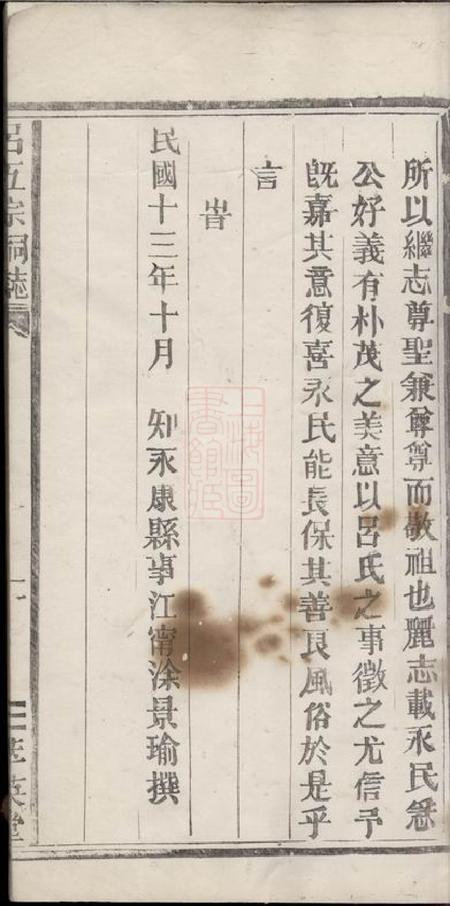 所以繼志尊聖兼尊尊而敬祖也麗志載永民急
公好義有朴茂之美意以呂氏之事徵之尤信予
既嘉其意復喜永民能長保其善良風俗於是乎
言
旹
民國十三年十月　知永康縣事江甯涂景瑜撰
呂五宗祠誌